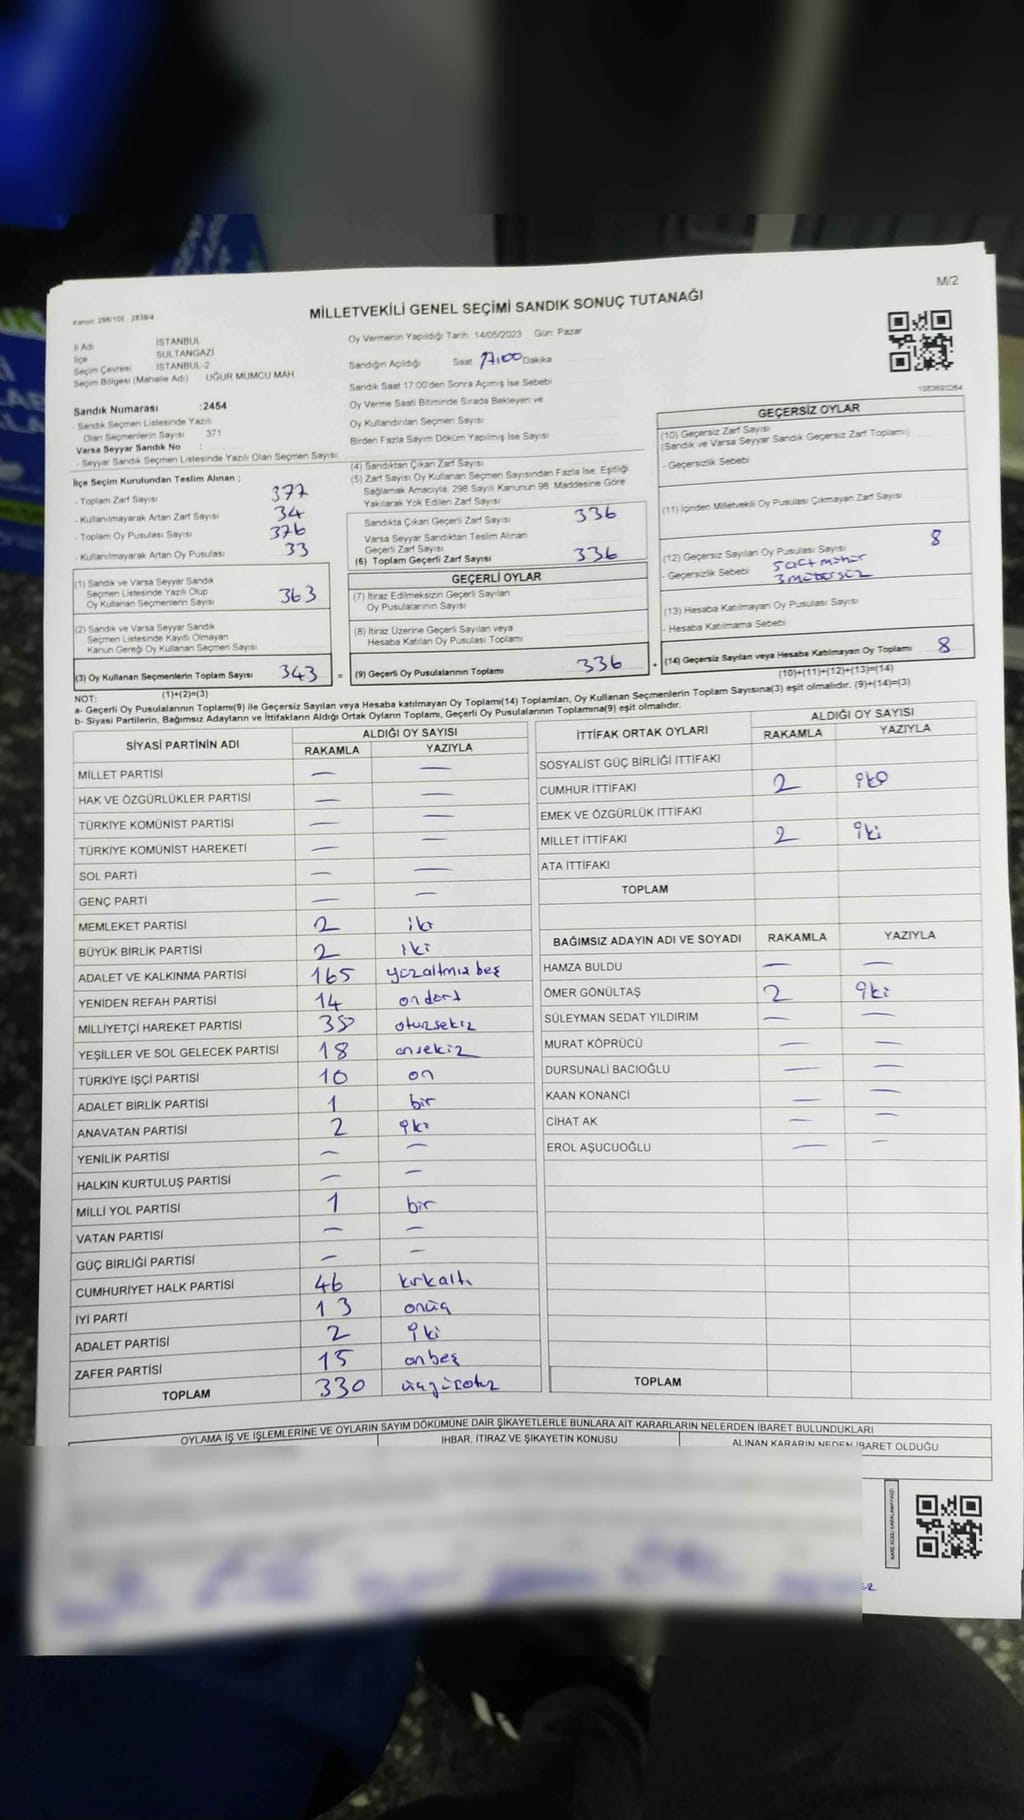 M/2
MİLLETVEKİLİ GENEL SEÇİMİ SANDIK SONUÇ TUTANAĞI
Kanun: 298/105 2839/4
İl Adı İSTANBUL
İlçe SULTANGAZİ
Seçim Çevresi İSTANBUL-2
Seçim Bölgesi (Mahalle Adı) UĞUR MUMCU MAH.
Oy Vermenin Yapıldığı Tarih: 14/05/2023 Gün: Pazar
Sandığın Açıldığı Saat 17:00 Dakika
Sandık Saat 17:00'den Sonra Açımış İse Sebebi
Oy Verme Saati Bitiminde Sırada Bekleyen ve
Oy Kullandırılan Seçmen Sayısı
Birden Fazla Sayım Döküm Yapılmış İse Sayısı
Sandık Numarası :2454
- Sandık Seçmen Listesinde Yazılı
Olan Seçmenlerin Sayısı 371
Varsa Seyyar Sandık No :
- Seyyar Sandık Seçmen Listesinde Yazılı Olan Seçmen Sayısı:
İlçe Seçim Kurulundan Teslim Alınan ;
- Toplam Zarf Sayısı 377
- Kullanılmayarak Artan Zarf Sayısı 34
- Toplam Oy Pusulası Sayısı 376
- Kullanılmayarak Artan Oy Pusulası 33
(1) Sandık ve Varsa Seyyar Sandık
Seçmen Listesinde Yazılı Olup
Oy Kullanan Seçmenlerin Sayısı 363
(2) Sandık ve Varsa Seyyar Sandık
Seçmen Listesinde Kayıtlı Olmayan
Kanun Gereği Oy Kullanan Seçmen Sayısı
(3) Oy Kullanan Seçmenlerin Toplam Sayısı 343
(1)+(2)=(3)
(4) Sandıktan Çıkan Zarf Sayısı
(5) Zarf Sayısı Oy Kullanan Seçmen Sayısından Fazla İse, Eşitliği
Sağlamak Amacıyla, 298 Sayılı Kanunun 98. Maddesine Göre
Yakılarak Yok Edilen Zarf Sayısı
Sandıkta Çıkan Geçerli Zarf Sayısı 336
Varsa Seyyar Sandıktan Teslim Alınan
Geçerli Zarf Sayısı
(6) Toplam Geçerli Zarf Sayısı 336
GEÇERLİ OYLAR
(7) İtiraz Edilmeksizin Geçerli Sayılan
Oy Pusulalarının Sayısı
(8) İtiraz Üzerine Geçerli Sayılan veya
Hesaba Katılan Oy Pusulası Toplamı
= (9) Geçerli Oy Pusulalarının Toplamı 336 +
1083693264
GEÇERSİZ OYLAR
(10) Geçersiz Zarf Sayısı
(Sandık ve Varsa Seyyar Sandık Geçersiz Zarf Toplamı)
- Geçersizlik Sebebi
(11) İçinden Milletvekili Oy Pusulası Çıkmayan Zarf Sayısı
(12) Geçersiz Sayılan Oy Pusulası Sayısı 8
- Geçersizlik Sebebi 5 çift mühür
3 mühürsüz
(13) Hesaba Katılmayan Oy Pusulası Sayısı
- Hesaba Katılmama Sebebi
(14) Geçersiz Sayılan veya Hesaba Katılmayan Oy Toplamı 8
(10)+(11)+(12)+(13)=(14)
NOT:
a- Geçerli Oy Pusulalarının Toplamı(9) ile Geçersiz Sayılan veya Hesaba katılmayan Oy Toplamı(14) Toplamları, Oy Kullanan Seçmenlerin Toplam Sayısına(3) eşit olmalıdır. (9)+(14)=(3)
b- Siyasi Partilerin, Bağımsız Adayların ve İttifakların Aldığı Ortak Oyların Toplamı, Geçerli Oy Pusulalarının Toplamına(9) eşit olmalıdır.
SİYASİ PARTİNİN ADI ALDIĞI OY SAYISI
RAKAMLA YAZIYLA
MİLLET PARTİSİ — —
HAK VE ÖZGÜRLÜKLER PARTİSİ — —
TÜRKİYE KOMÜNİST PARTİSİ — —
TÜRKİYE KOMÜNİST HAREKETİ — —
SOL PARTİ — —
GENÇ PARTİ — —
MEMLEKET PARTİSİ 2 iki
BÜYÜK BİRLİK PARTİSİ 2 iki
ADALET VE KALKINMA PARTİSİ 165 yüzaltmız beş
YENİDEN REFAH PARTİSİ 14 ondört
MİLLİYETÇİ HAREKET PARTİSİ 38 otuzsekiz
YEŞİLLER VE SOL GELECEK PARTİSİ 18 onsekiz
TÜRKİYE İŞÇİ PARTİSİ 10 on
ADALET BİRLİK PARTİSİ 1 bir
ANAVATAN PARTİSİ 2 iki
YENİLİK PARTİSİ — —
HALKIN KURTULUŞ PARTİSİ — —
MİLLİ YOL PARTİSİ 1 bir
VATAN PARTİSİ — —
GÜÇ BİRLİĞİ PARTİSİ — —
CUMHURİYET HALK PARTİSİ 46 kırkaltı
İYİ PARTİ 13 onüç
ADALET PARTİSİ 2 iki
ZAFER PARTİSİ 15 onbeş
TOPLAM 330 üçyüzotuz
İTTİFAK ORTAK OYLARI ALDIĞI OY SAYISI
RAKAMLA YAZIYLA
SOSYALİST GÜÇ BİRLİĞİ İTTİFAKI
CUMHUR İTTİFAKI 2 iki
EMEK VE ÖZGÜRLÜK İTTİFAKI
MİLLET İTTİFAKI 2 iki
ATA İTTİFAKI
TOPLAM
BAĞIMSIZ ADAYIN ADI VE SOYADI RAKAMLA YAZIYLA
HAMZA BULDU — —
ÖMER GÖNÜLTAŞ 2 iki
SÜLEYMAN SEDAT YILDIRIM — —
MURAT KÖPRÜCÜ — —
DURSUNALİ BACIOĞLU — —
KAAN KONANCİ — —
CİHAT AK — —
EROL AŞUCUOĞLU — —
TOPLAM
OYLAMA İŞ VE İŞLEMLERİNE VE OYLARIN SAYIM DÖKÜMÜNE DAİR ŞİKAYETLERLE BUNLARA AİT KARARLARIN NELERDEN İBARET BULUNDUKLARI
İHBAR, İTİRAZ VE ŞİKAYETİN KONUSU ALINAN KARARIN NEDEN İBARET OLDUĞU